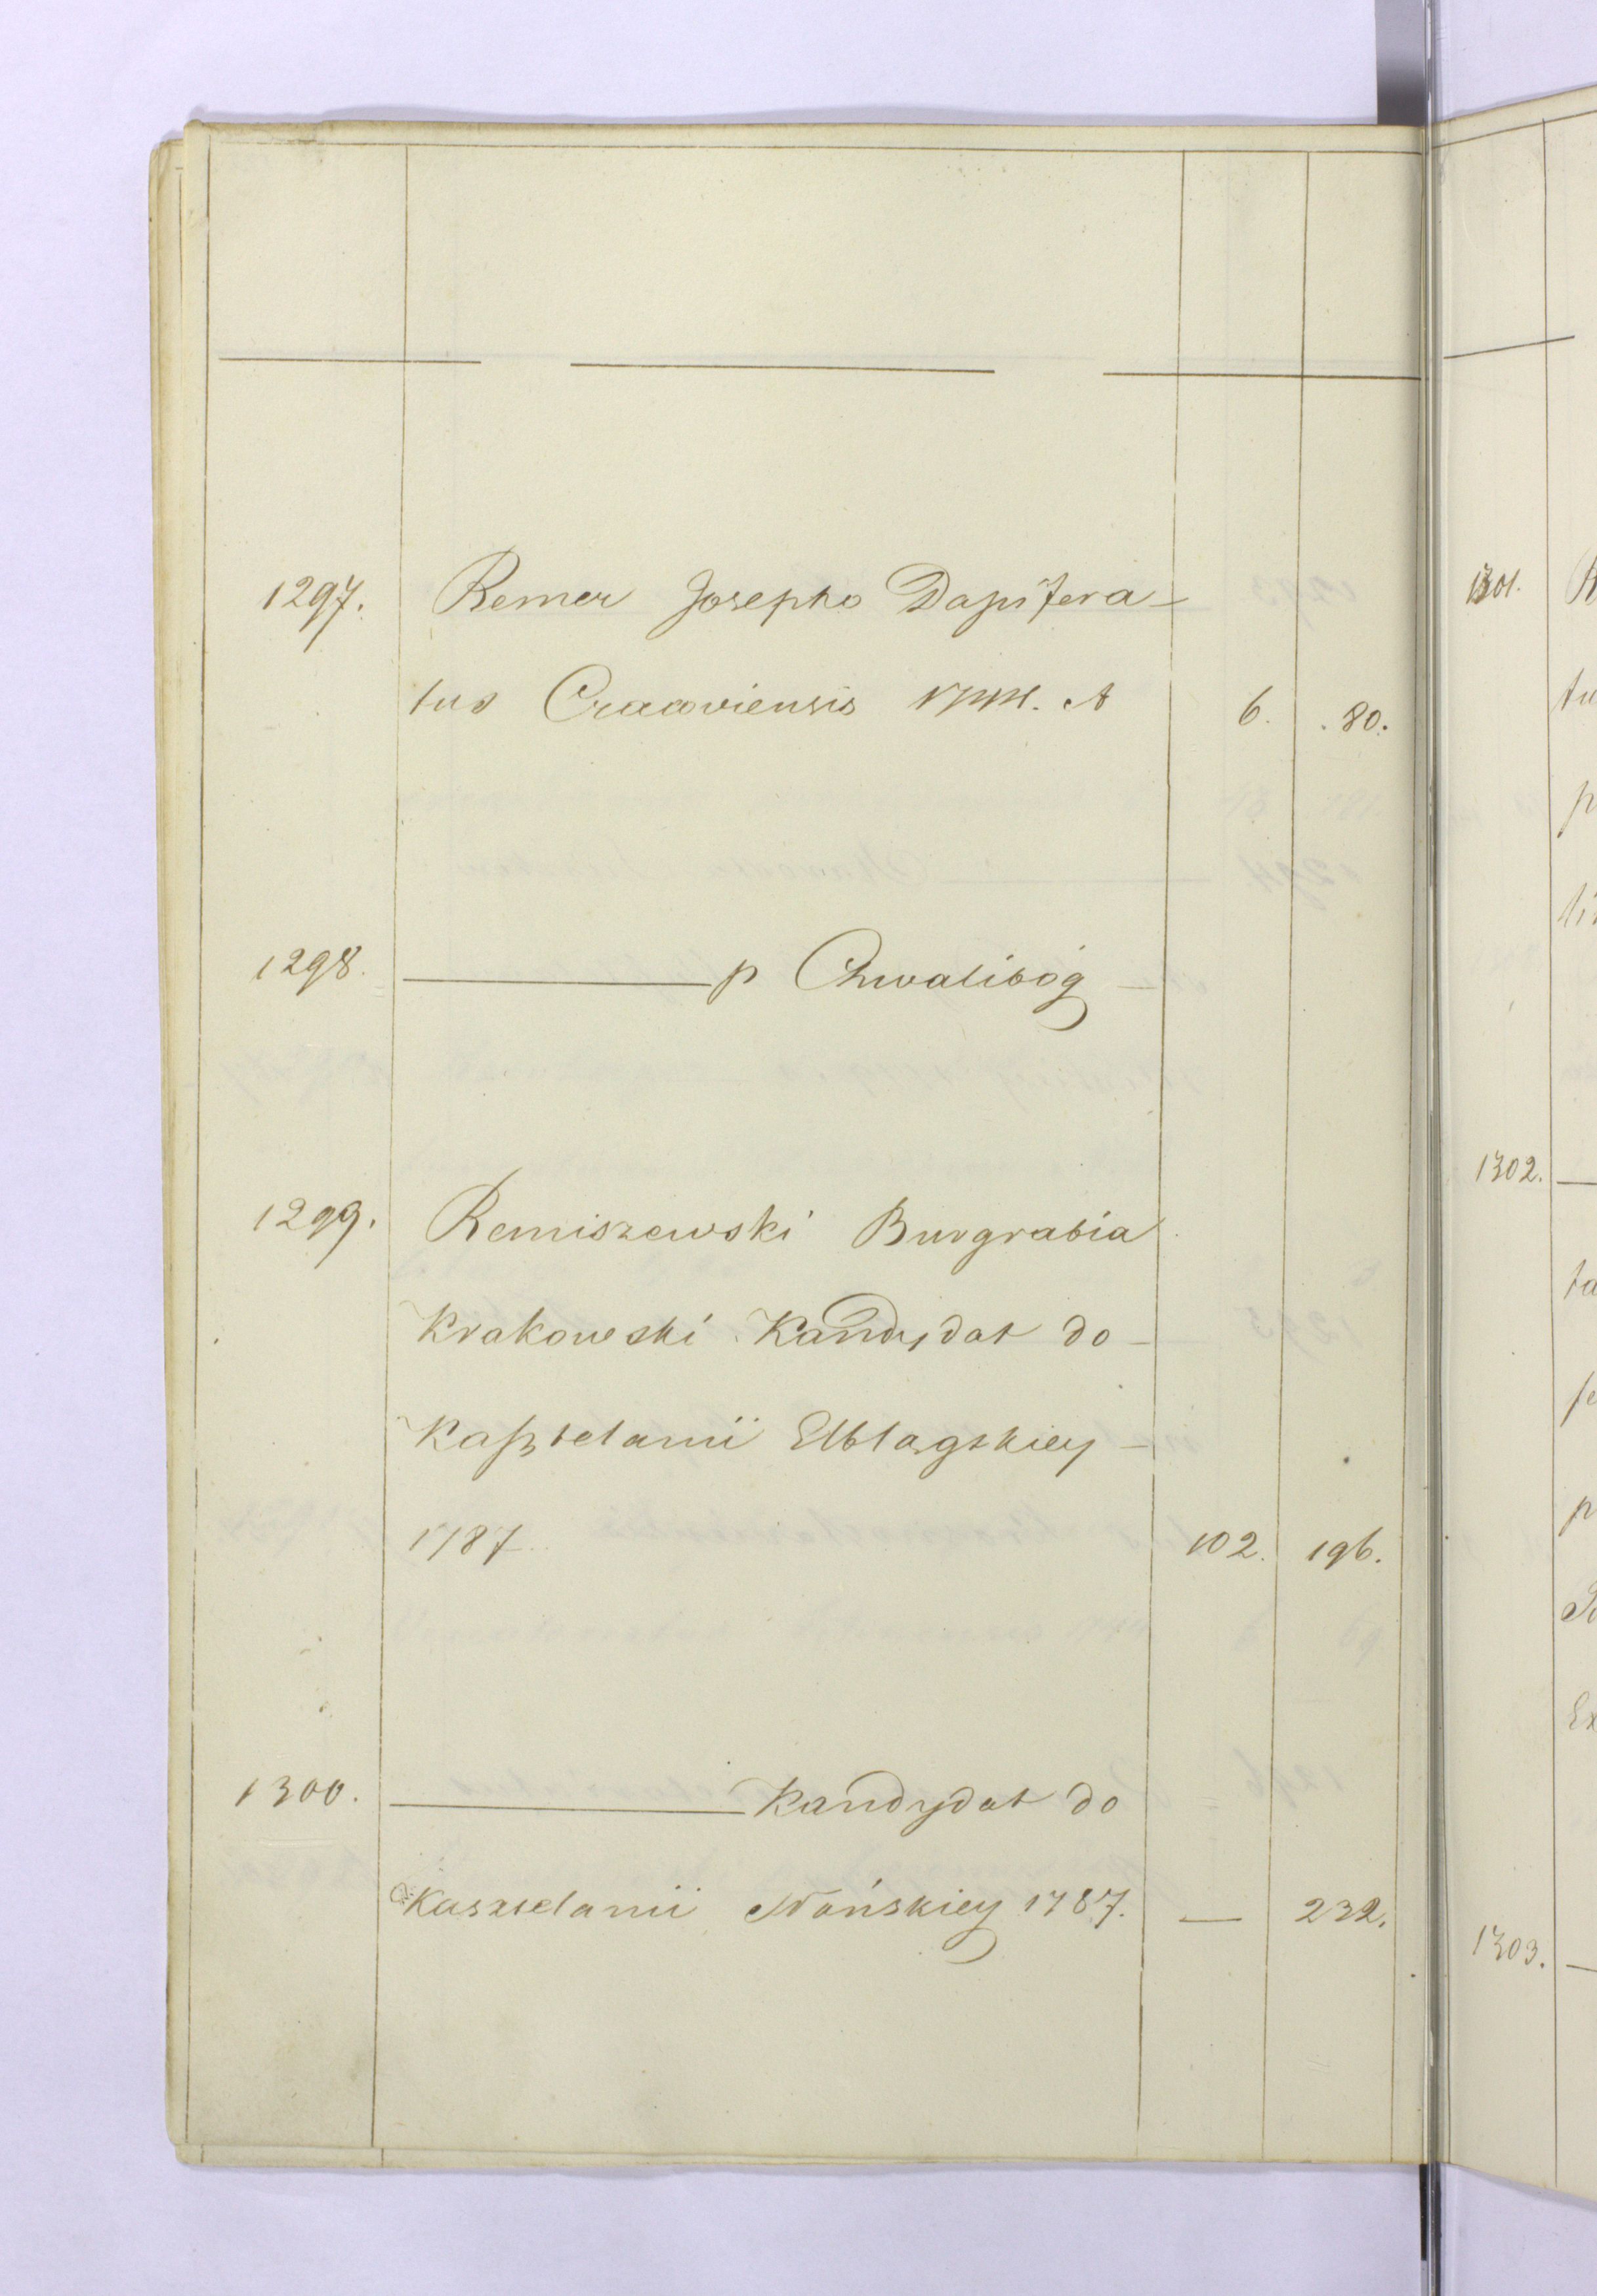 1297. Remer Josepho Dapifera-
tus Cracoviensis A 6. 80.
1298. p Chwalibóg
1299. Remiszewski Burgrabia
Krakowski Kandydat do
Kasztelanii Elblągskiey
1787. 102. 196.
1300. Kandydat do
Kasztelanii 1787. — 232.
1301.
1302.
1303.